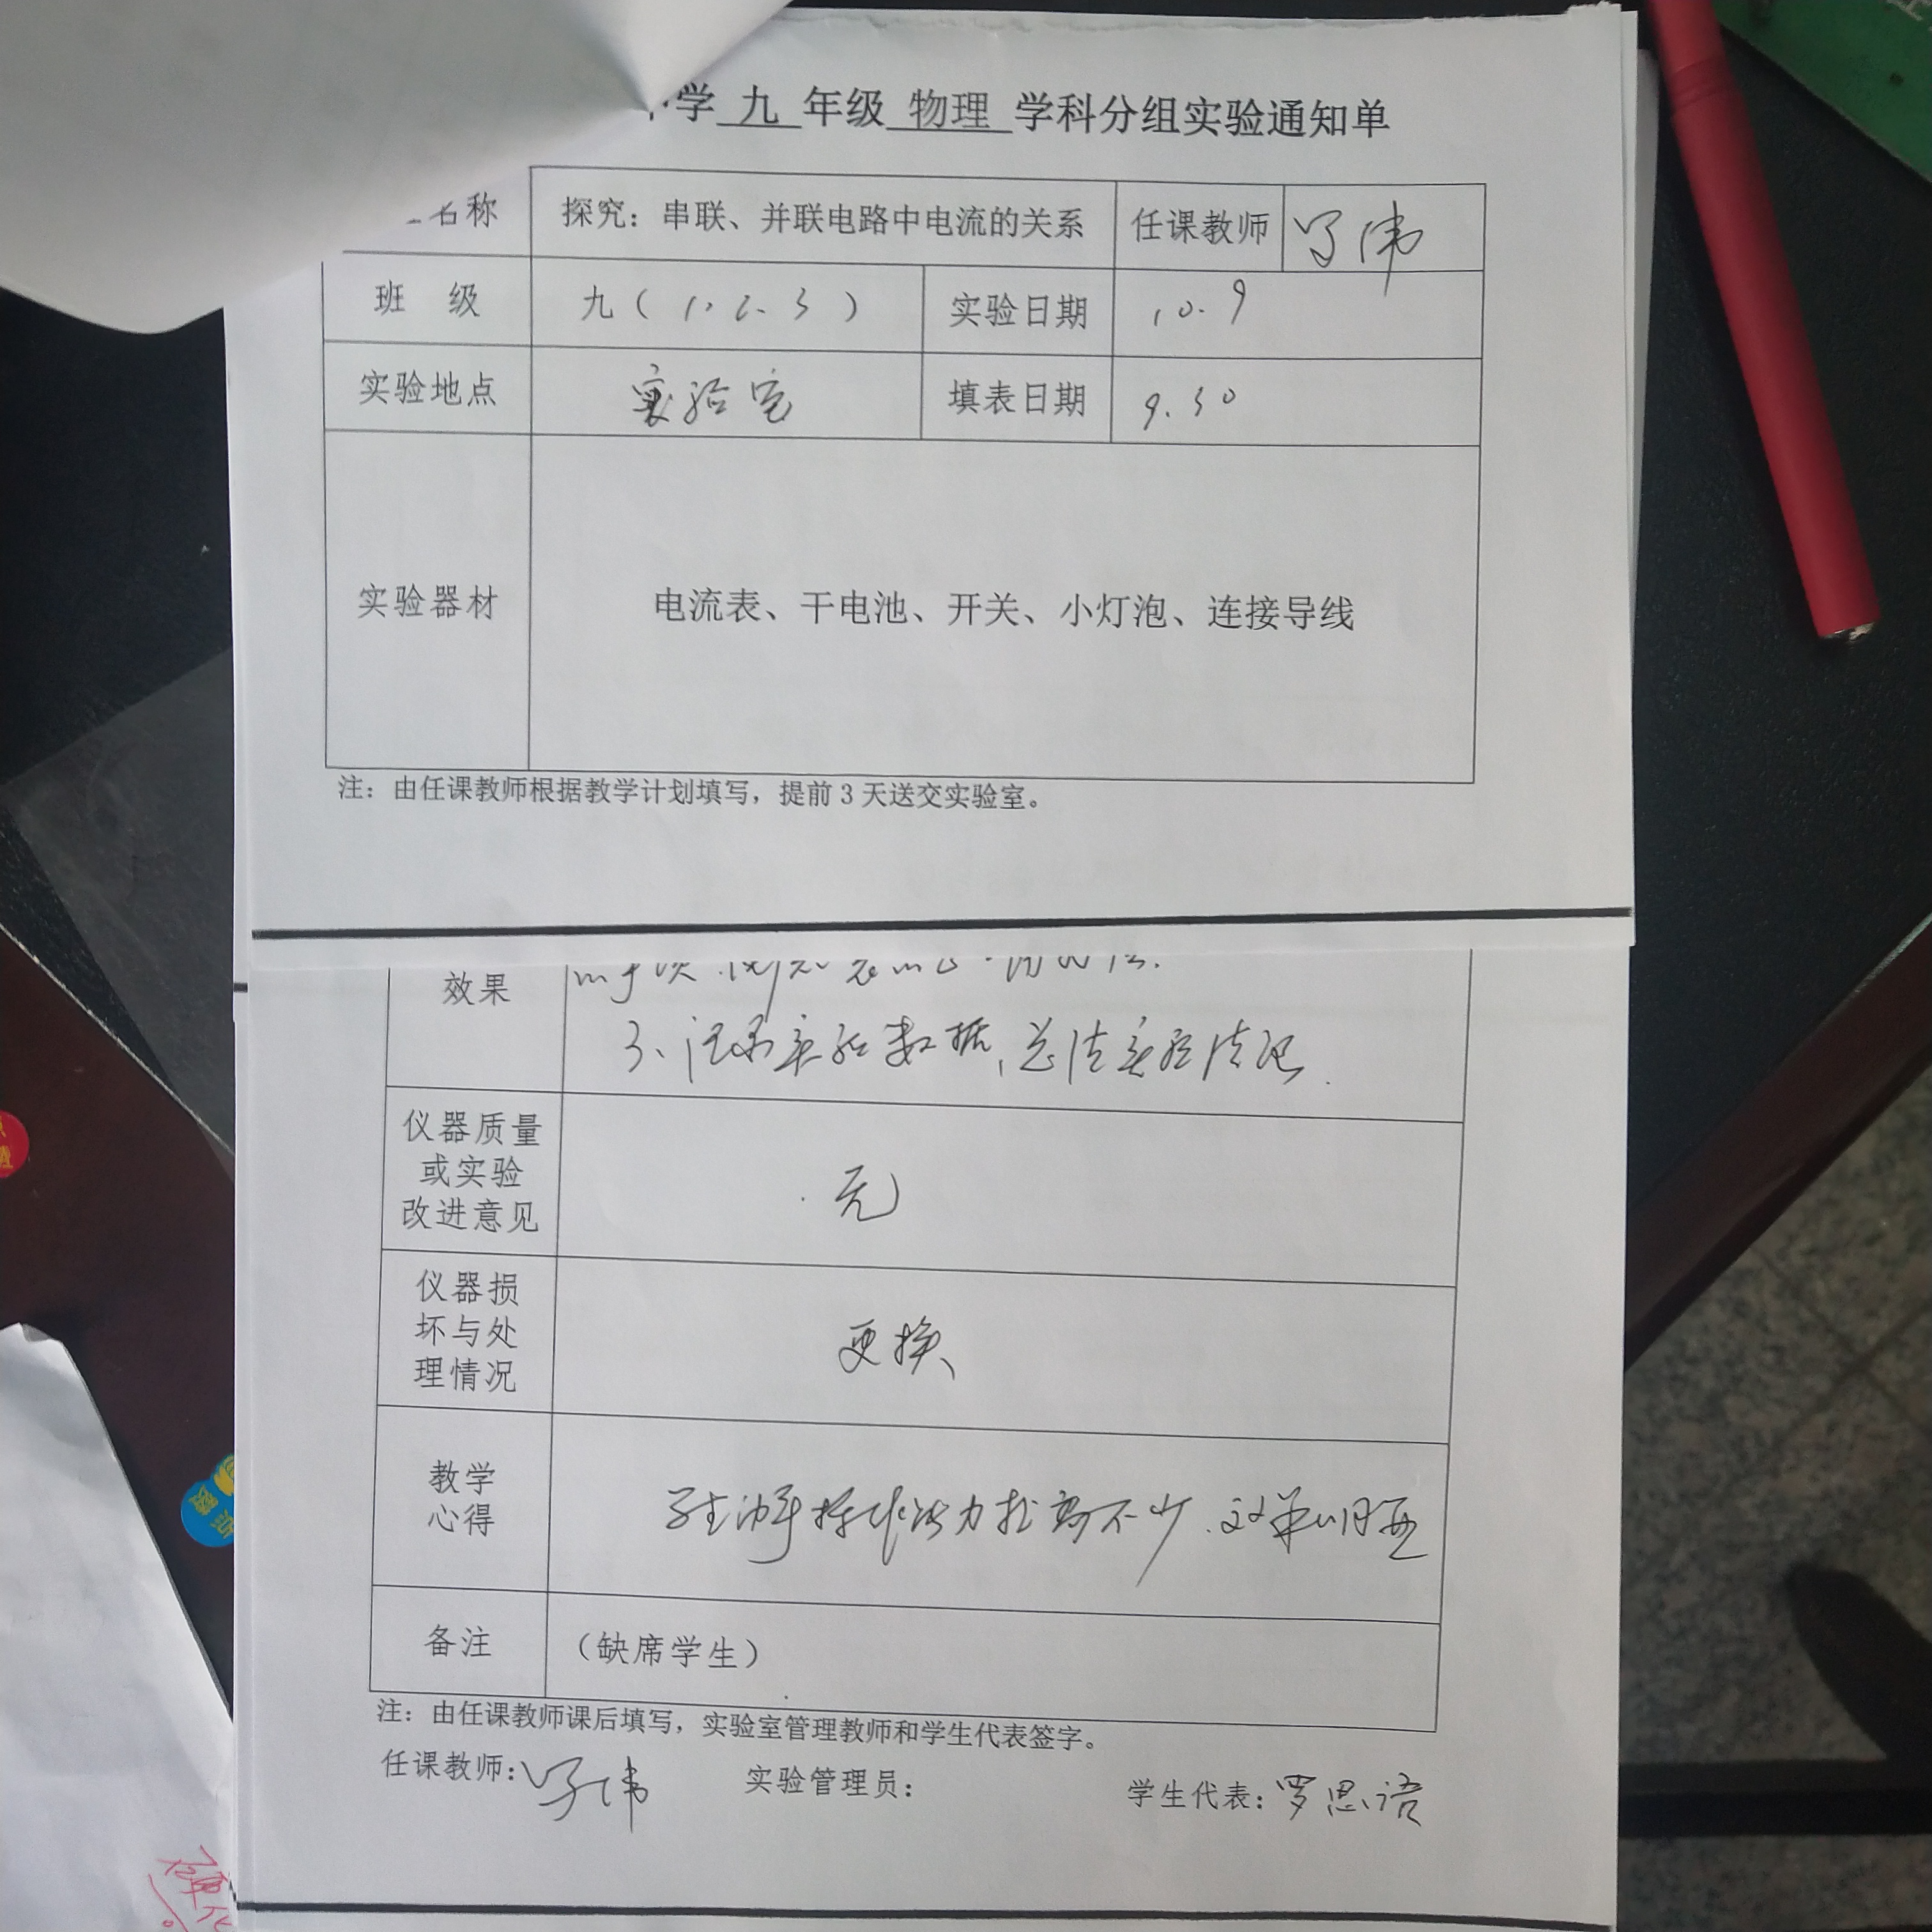 学 九 年级 物理 学科分组实验通知单
名称 探究：串联、并联电路中电流的关系 任课教师
班 级 九（1、2、3） 实验日期 10.9
实验地点 实验室 填表日期 9.30
实验器材 电流表、干电池、开关、小灯泡、连接导线
注：由任课教师根据教学计划填写，提前3天送交实验室。
效果
3、记录实验数据，总结实验情况.
仪器质量
或实验
改进意见
无
仪器损
坏与处
理情况
更换
教学
心得
学生动手操作能力提高不少
备注 （缺席学生）
注：由任课教师课后填写，实验室管理教师和学生代表签字。
任课教师： 实验管理员： 学生代表：罗思语